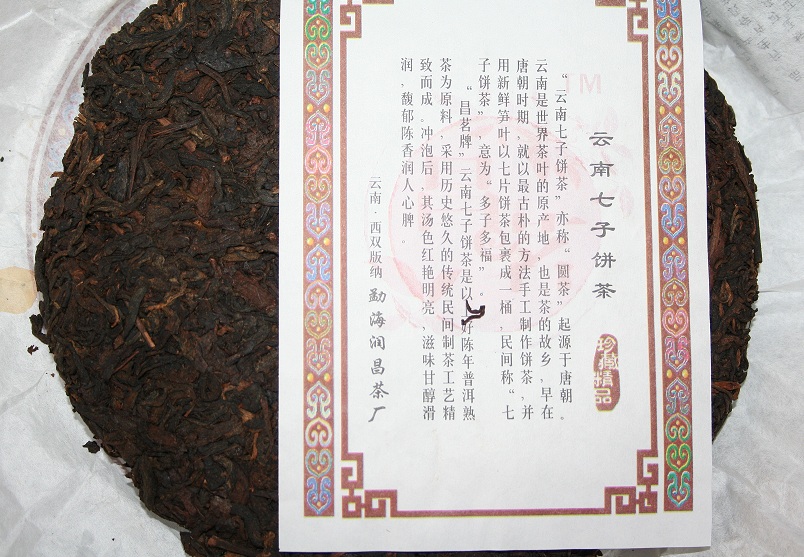 云南七子饼茶
珍藏精品
“云南七子饼茶”亦称“圆茶”起源于唐朝。
云南是世界茶叶的原产地,也是茶的故乡,早在
唐朝时期,就以最古朴的方法手工制作饼茶,并
用新鲜笋叶以七片饼茶包裹成一桶,民间称“七
子饼茶”,意为“多子多福”。
“昌茗牌”云南七子饼茶是以好陈年普洱熟
茶为原料,采用历史悠久的传统民间制茶工艺精
致而成。冲泡后,其汤色红艳明亮,滋味甘醇滑
润,馥郁陈香润人心脾。
云南·西双版纳 勐海润昌茶厂